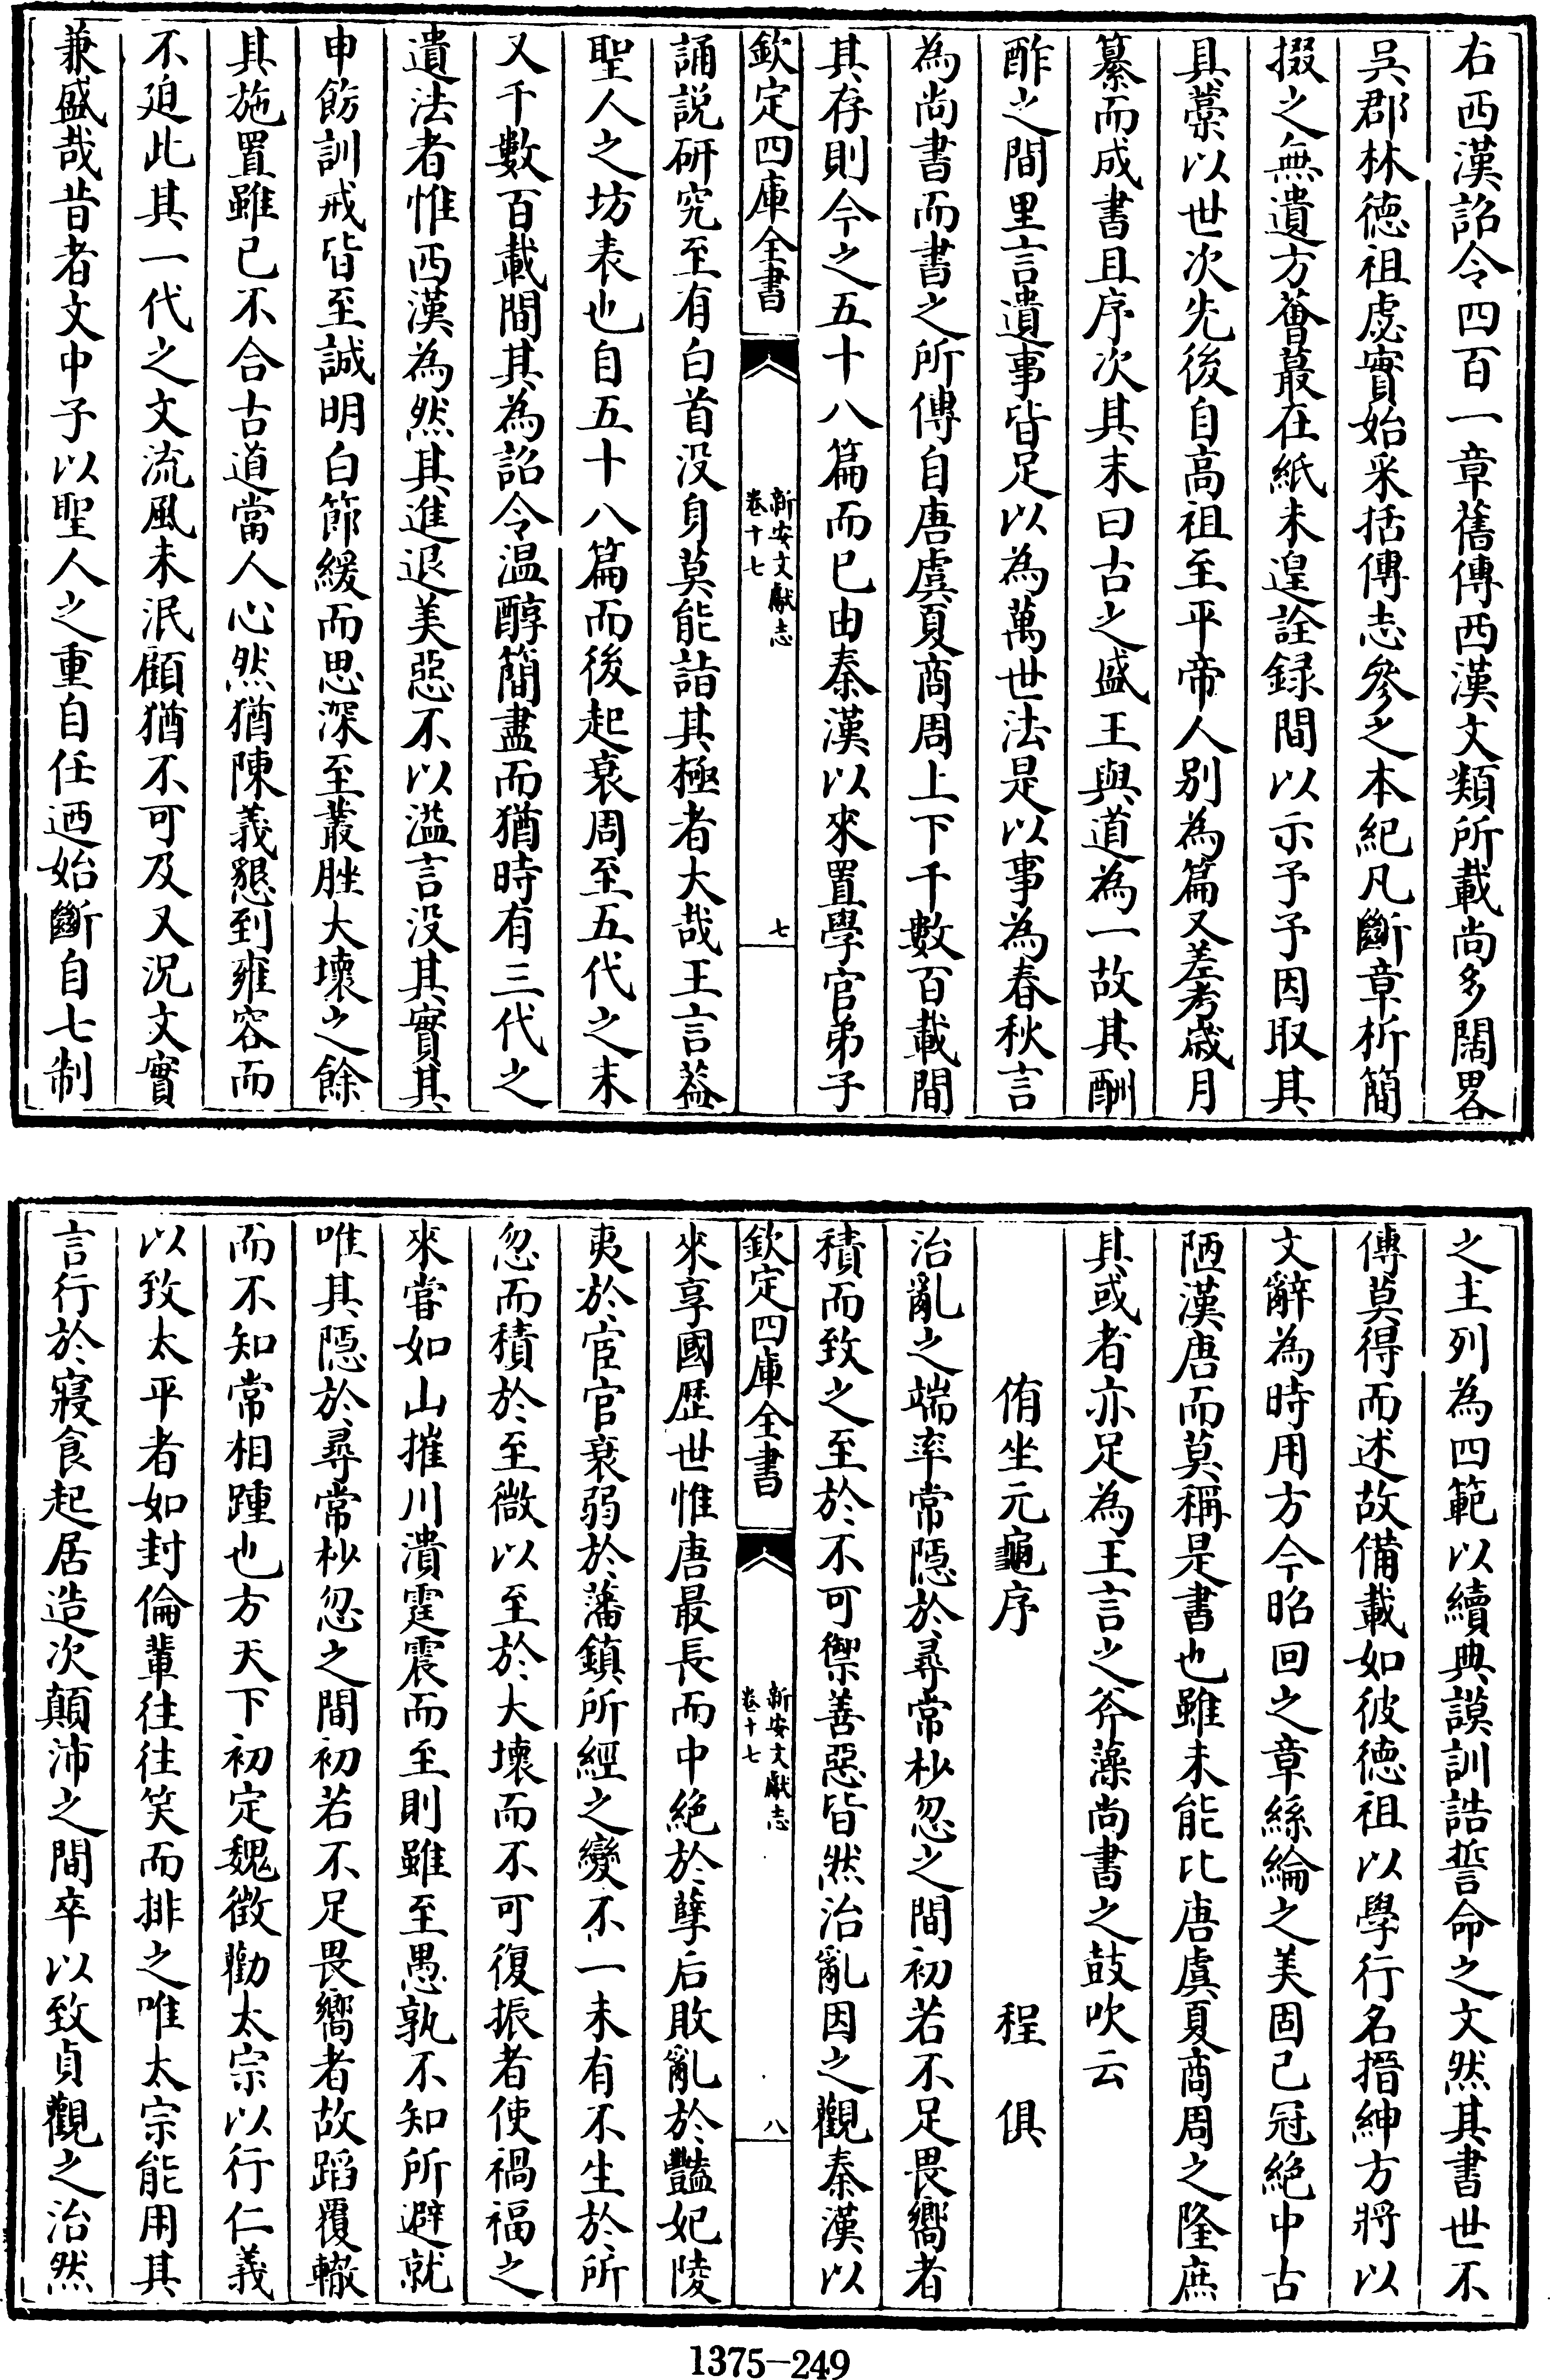 右西漢詔令四百一章舊傳西漢文類所載尚多闊畧
吳郡林德祖虙實始采括傳志參之本紀凡斷章析簡
掇之無遺方薈蕞在紙未遑詮録間以示予予因取其
具藁以世次先後自高祖至平帝人别為篇又差考歳月
纂而成書且序次其末曰古之盛王與道為一故其酬
酢之間里言遺事皆足以為萬世法是以事為春秋言
為尚書而書之所傳自唐虞夏商周上下千數百載間
其存則今之五十八篇而已由秦漢以來置學官弟子
欽定四庫全書
新安文獻志
卷十七
七
誦説研究至有白首没身莫能詣其極者大哉王言葢
聖人之坊表也自五十八篇而後起衰周至五代之末
又千數百載間其為詔令温醇簡盡而猶時有三代之
遺法者惟西漢為然其進退美惡不以溢言没其實其
申飭訓戒皆至誠明白節緩而思深至叢脞大壞之餘
其施置雖已不合古道當人心然猶陳義懇到雍容而
不廹此其一代之文流風未泯顧猶不可及又況文實
兼盛哉昔者文中子以聖人之重自任廼始斷自七制
之主列為四範以續典謨訓誥誓命之文然其書世不
傳莫得而述故備載如彼德祖以學行名搢紳方將以
文辭為時用方今昭回之章絲綸之美固已冠絶中古
陋漢唐而莫稱是書也雖未能比唐虞夏商周之隆庶
其或者亦足為王言之斧藻尚書之鼓吹云
侑坐元龜序　程俱
治亂之端率常隠於尋常杪忽之間初若不足畏嚮者
積而致之至於不可禦善惡皆然治亂因之觀秦漢以
欽定四庫全書
新安文獻志
卷十七
八
來享國歴世惟唐最長而中絶於孽后敗亂於豔妃陵
夷於宦官衰弱於藩鎮所經之變不一未有不生於所
忽而積於至微以至於大壞而不可復振者使禍福之
來嘗如山摧川潰霆震而至則雖至愚孰不知所避就
唯其隠於尋常杪忽之間初若不足畏嚮者故蹈覆轍
而不知常相踵也方天下初定魏徴勸太宗以行仁義
以致太平者如封倫輩往往笑而排之唯太宗能用其
言行於寢食起居造次顛沛之間卒以致貞觀之治然
1375-249